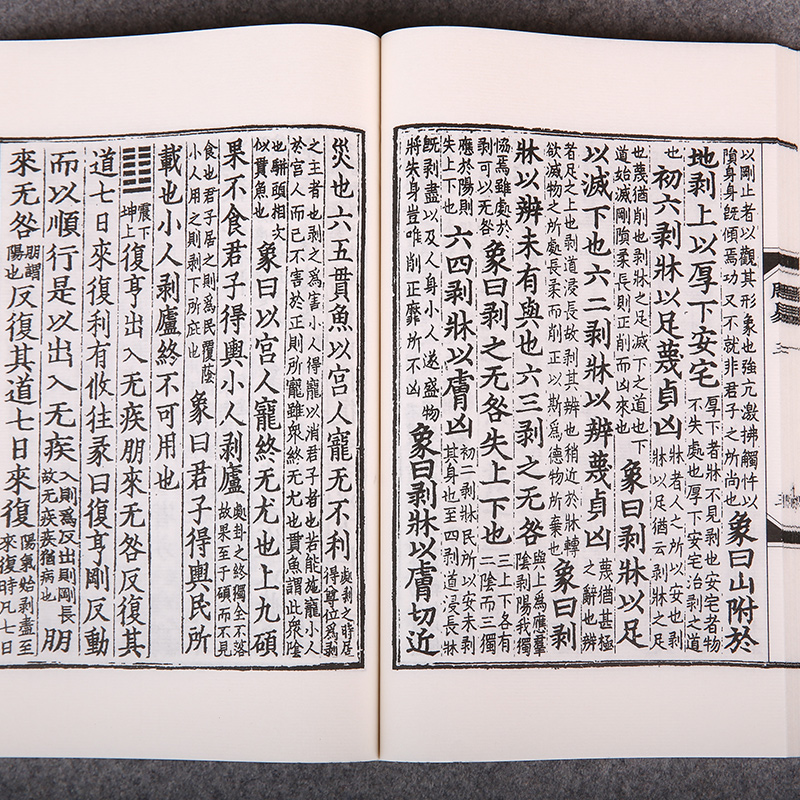 以剛止者以觀其形象也強亢激拂觸忤以隕身身既傾焉功又不就非君子之所尚也象曰山附於
地剝上以厚下安宅厚下者牀不見剝也安宅者物不失處也厚下安宅治剝之道
也初六剝牀以足蔑貞凶牀者人之所以安也剝牀以足猶云剝牀之足
也蔑猶削也剝牀之足滅下之道也下道始滅剛隕柔長則正削而凶來也象曰剝牀以足
以滅下也六二剝牀以辨蔑貞凶蔑猶甚極之辭也辨
者足之上也剝道浸長故剝其辨也稍近於牀轉欲滅物之所處長柔而削正以斯爲德物所棄也象曰剝
牀以辨未有與也六三剝之无咎與上爲應羣陰剝陽我獨
恊焉雖處於剝可以无咎象曰剝之无咎失上下也三上下各有二陰而三獨
應於陽則失上下也六四剝牀以膚凶初二剝牀民所以安未剝其身也至四剝道浸長牀
旣剝盡以及人身小人遂盛物將失身豈唯削正靡所不凶象曰剝牀以膚切近
災也六五貫魚以宮人寵无不利處剝之時居得尊位爲剝
之主者也剝之爲害小人得寵以消君子者也若能施寵小人於宮人而已不害於正則所寵雖衆終无尤也貫魚謂此衆陰
也駢頭相次似貫魚也象曰以宮人寵終无尤也上九碩
果不食君子得輿小人剝廬處卦之終獨全不落故果至于碩而不見
食也君子居之則爲民覆蔭小人用之則剝下所庇也象曰君子得輿民所
載也小人剝廬終不可用也
䷗震下坤上復亨出入无疾朋來无咎反復其
道七日來復利有攸往彖曰復亨剛反動
而以順行是以出入无疾入則爲反出則剛長故无疾疾猶病也朋
來无咎朋謂陽也反復其道七日來復陽氣始剝盡至來復時凡七日